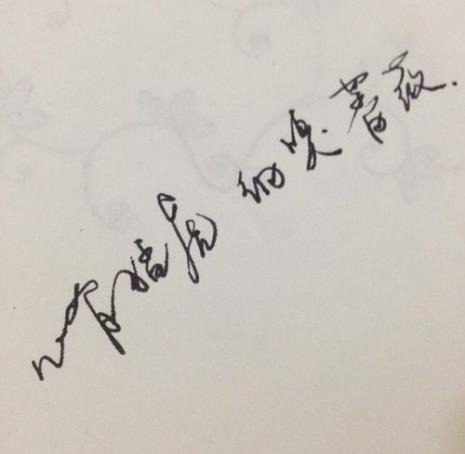 心有猛虎 细嗅蔷薇.